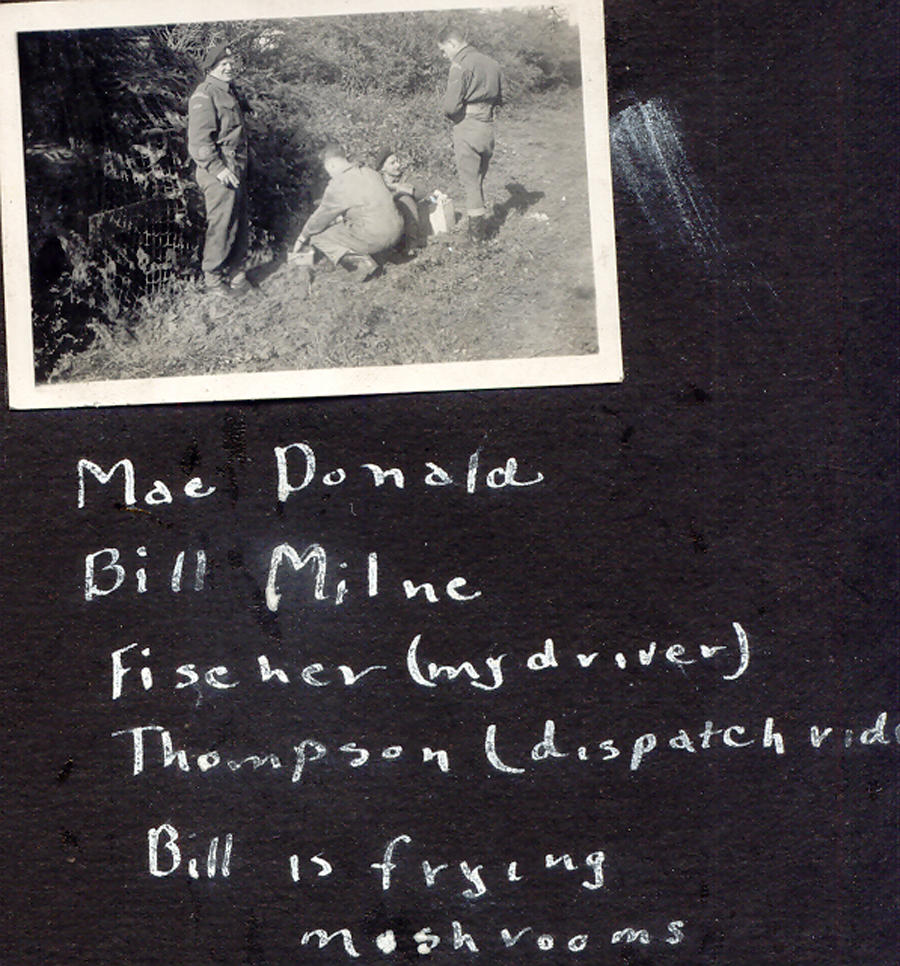 Mac Donald
Bill Milne
Fischer (my driver)
Thompson (dispatch ride
Bill is frying
moshrooms